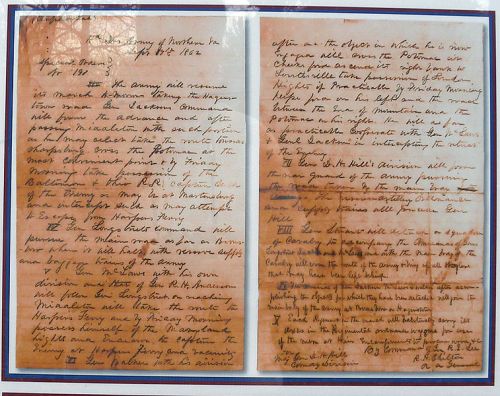 (Confidential)
Hd Qrs Army of Northern Va
Sept 9th 1862
Special Orders
No 191
III The Army will resume
its march to-morrow taking the Hagers-
town road. Gen Jackson's command
will form the advance and after
passing Middletown with such portion
as he may select take the route towards
Sharpsburg cross the Potomac at the
most convenient point & by Friday
morning take possession of the
Baltimore & Ohio R.R. capture such
of the Enemy as may be at Martinsburg
and intercept such as may attempt
to Escape from Harpers Ferry
IV Gen Longstreets command will
pursue the main road as far as Boons-
boro where it will halt, with reserve supply
and baggage trains of the army
V Gen McLaws with his own
division and that of Gen R. H. Anderson
will follow Gen Longstreet on reaching
Middletown will take the route to
Harpers Ferry and by Friday morning
possess himself of the Maryland
heights and Endeavor to capture the
Enemy at Harpers Ferry and vicinity
VI Gen Walker with his division
after accomplishing the object in which he is now
engaged will cross the Potomac at
Cheeks ford ascend its right bank to
Lovettsville take possession of Loudon
Heights if Practicable by Friday Morning
Keys ford on his left and the road
between the End of Mountain and the
Potomac on his right. He will as far
as practicable cooperate with Gen McLaws
& Genl Jackson in intercepting the retreat
of the Enemy
VII Gen D. H. Hill's division will form
the rear guard of the Army pursuing
the road taken by the main body
The reserve artillery Ordnance
and supply trains &c will precede Gen
Hill
VIII Gen Stuart will detach a squadron
of Cavalry to accompany the commands of Gen
Longstreet Jackson and McLaws and with the main body of the
Cavalry will cover the route of the army & bring up all stragglers
that may have been left behind
IX The commands of Gen Jackson McLaws & Walker after accom-
plishing the objects for which they have been detached will join the
main body of the army at Boonsboro or Hagerstown
X Each Regiment on the march will habitually carry its
axes in the Regimental ordnance wagons for use
of the men at their Encampments to procure wood &c
By command of Gen R. E. Lee
R. H. Chilton
A A General
Maj Gen D. H. Hill
Comdg Division